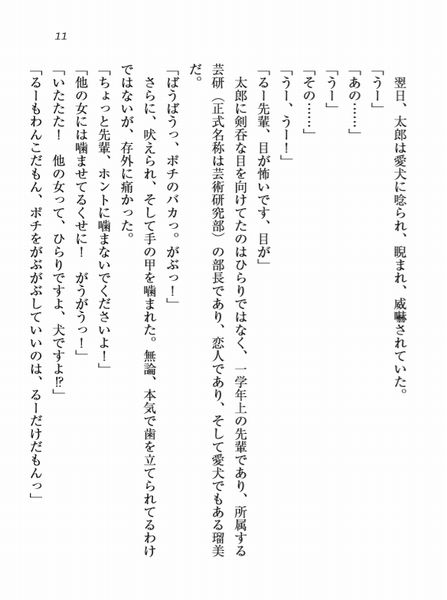 11
翌日、太郎は愛犬に唸られ、睨まれ、威嚇されていた。
「うー」
「あの……」
「うー」
「その……」
「うー、うー！」
「るー先輩、目が怖いです、目が」
太郎に剣呑な目を向けてたのはひらりではなく、一学年上の先輩であり、所属する
芸研（正式名称は芸術研究部）の部長であり、恋人であり、そして愛犬でもある瑠美
だ。
「ばうばうっ、ポチのバカっ。がぶっ！」
さらに、吠えられ、そして手の甲を噛まれた。無論、本気で歯を立てられてるわけ
ではないが、存外に痛かった。
「ちょっと先輩、ホントに噛まないでくださいよ！」
「他の女には噛ませてるくせに！　がうがうっ！」
「いたたた！　他の女って、ひらりですよ、犬ですよ!?
「るーもわんこだもん、ポチをがぶがぶしていいのは、るーだけだもんっ」